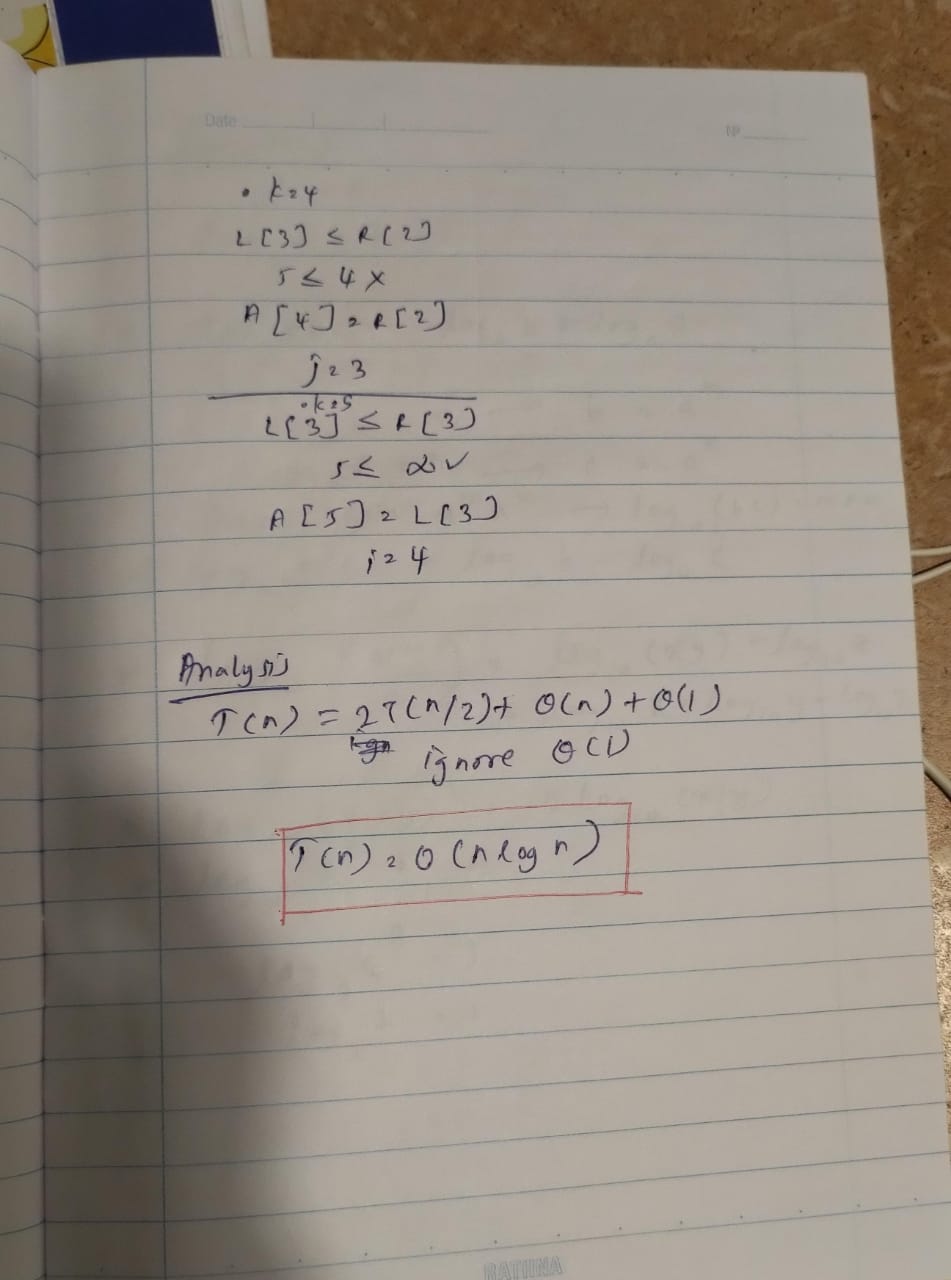 Date
Nº
• k=4
L[3] ≤ R[2]
5 ≤ 4 ×
A[4] = R[2]
j=3
• k=5
L[3] ≤ R[3]
5 ≤ ∞ ✓
A[5] = L[3]
i=4
Analysis
T(n) = 2T(n/2) + Θ(n) + Θ(1)
ignore Θ(1)
T(n) = Θ(n log n)
RATHNA